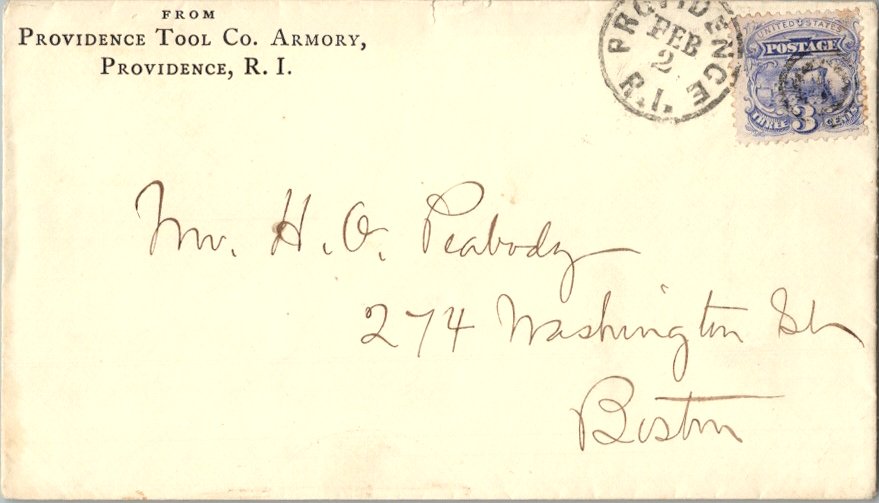 FROM
PROVIDENCE TOOL CO. ARMORY,
PROVIDENCE, R. I.
PROVIDENCE
FEB
2
R.I.
UNITED STATES
POSTAGE
THREE 3 CENTS
Mr. H. O. Peabody
274 Washington St
Boston